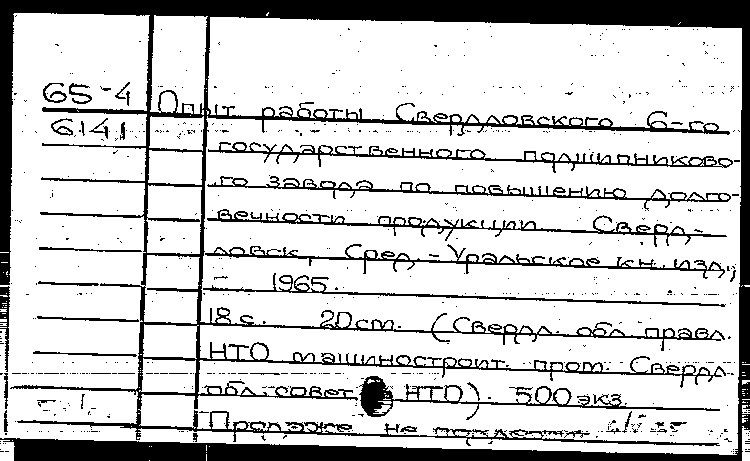 65-4 Опыт работы Свердловского 6-го
6141
государственного подшипниково-
го завода по повышению долго-
вечности продукции. Сверд-
ловск, Сред.-Уральское кн. изд.,
1965.
18 с. 20 cm. (Свердл. обл. правл.
НТО машиностроит. пром. Свердл.
обл. совет НТО). 500 экз.
Продаже не подлежит